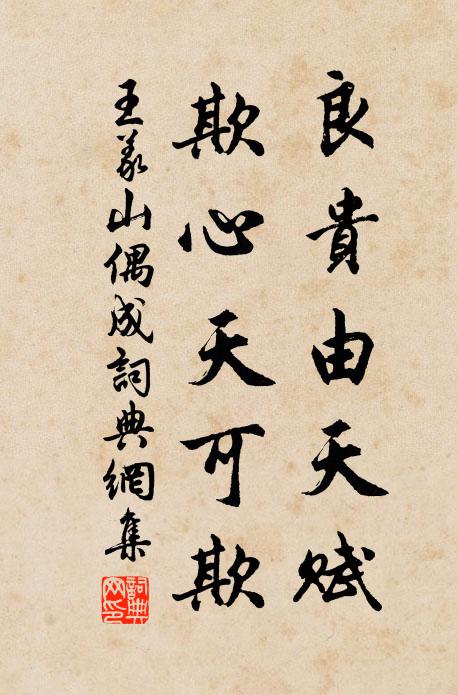 良貴由天賦
欺心天可欺
王義山偶成詞典網集
詞典網印